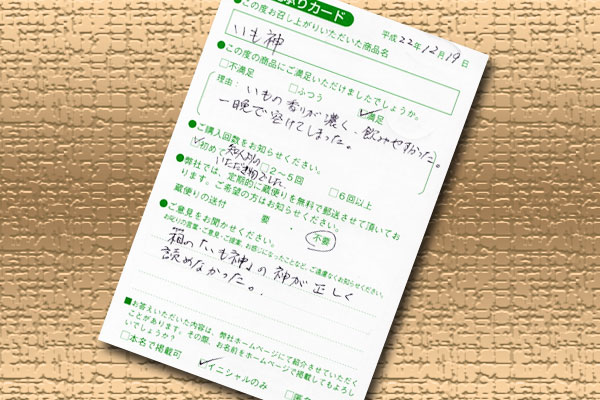 ぶりカード
平成22年12月19日
●この度お召し上がりいただいた商品名
いも神
●この度の商品にご満足いただけましたでしょうか。
□不満足 □ふつう ☑満足
理由：いもの香りが濃く、飲みやすかった。
一晩で空けてしまった。
●ご購入回数をお知らせください。
☑初めて 知人からの いただき物でした。 □2～5回 □6回以上
●弊社では、定期的に蔵便りを無料で郵送させて頂いております。ご希望の方はお知らせください。
蔵便りの送付 要 ・ 不要
●ご意見をお聞かせください。
お叱りの言葉・ご意見・ご提案、お感じになったことなど、ご遠慮なくお知らせください。
箱の「いも神」の神が正しく
読めなかった。
■お答えいただいた内容は、弊社ホームページにて紹介させていただく
ことがあります。その際、お名前をホームページで掲載してもよろし
いでしょうか？
□本名で掲載可 ☑イニシャルのみ □匿